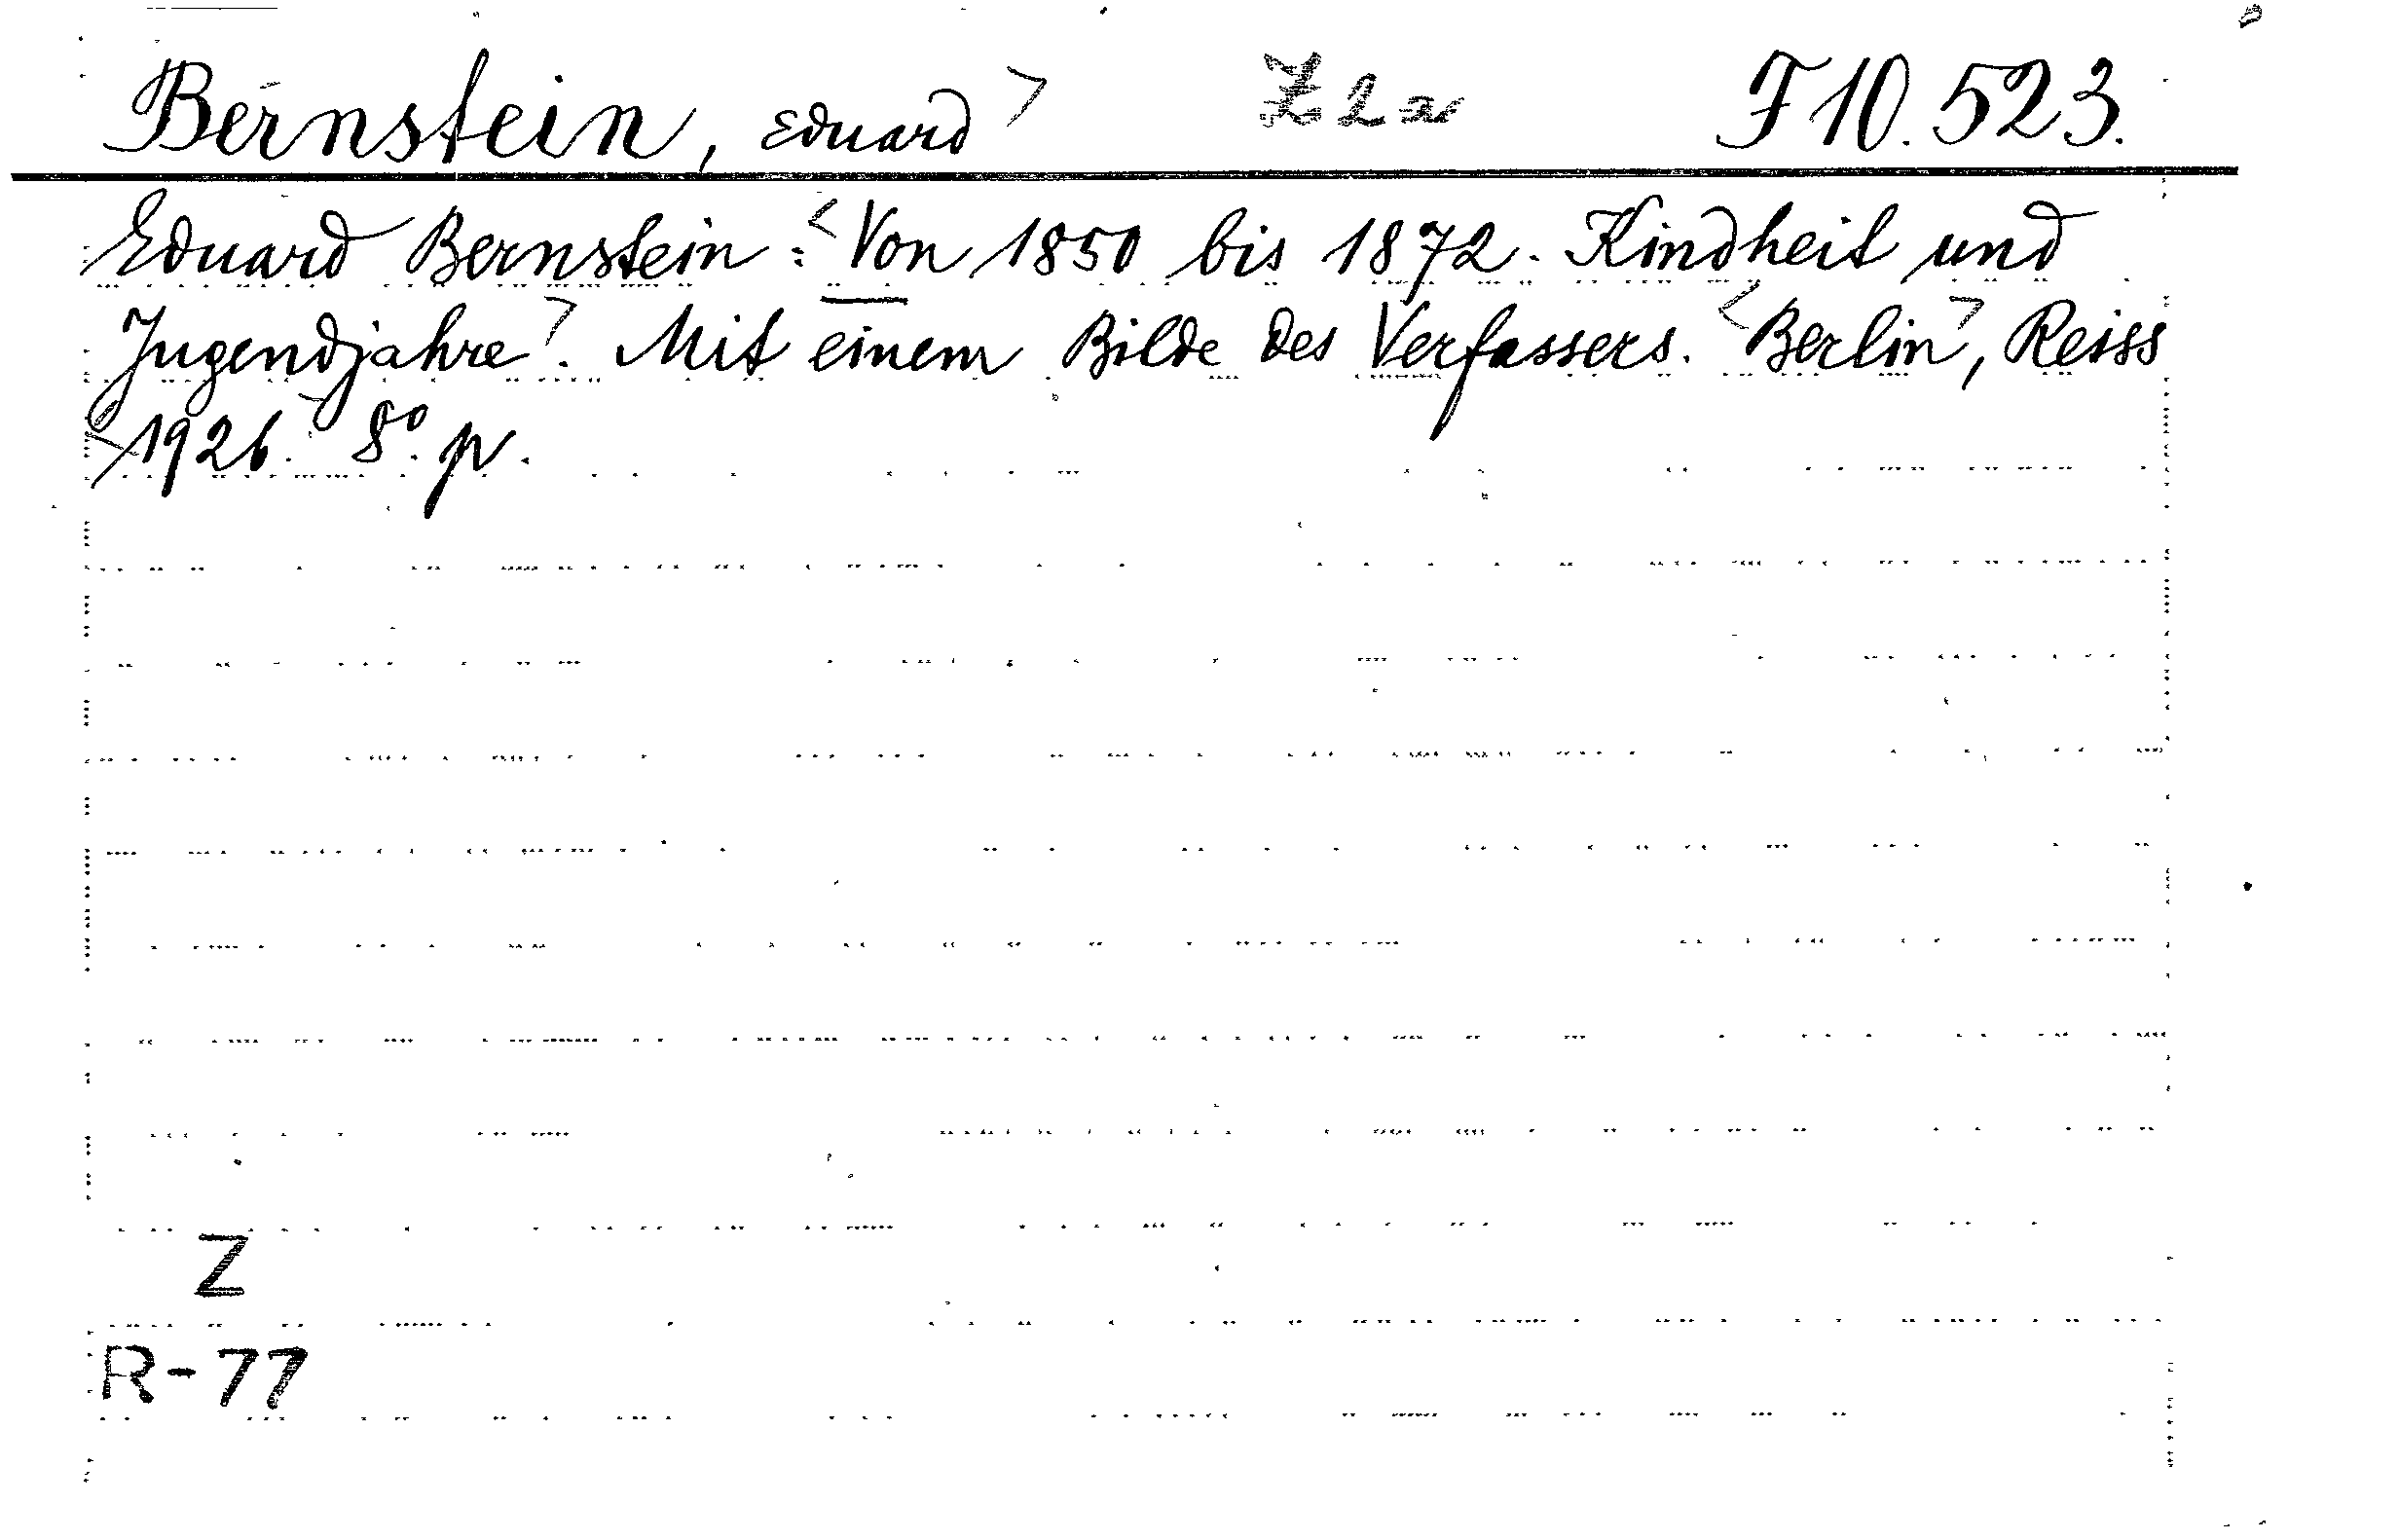 Bernstein, Eduard> F 10.523.
Eduard Bernstein: <Von 1850 bis 1872. Kindheit und
Jugendjahre>. Mit einem Bilde des Verfassers. <Berlin>, Reiss
<1926.> 8°. p.
Z
R-77